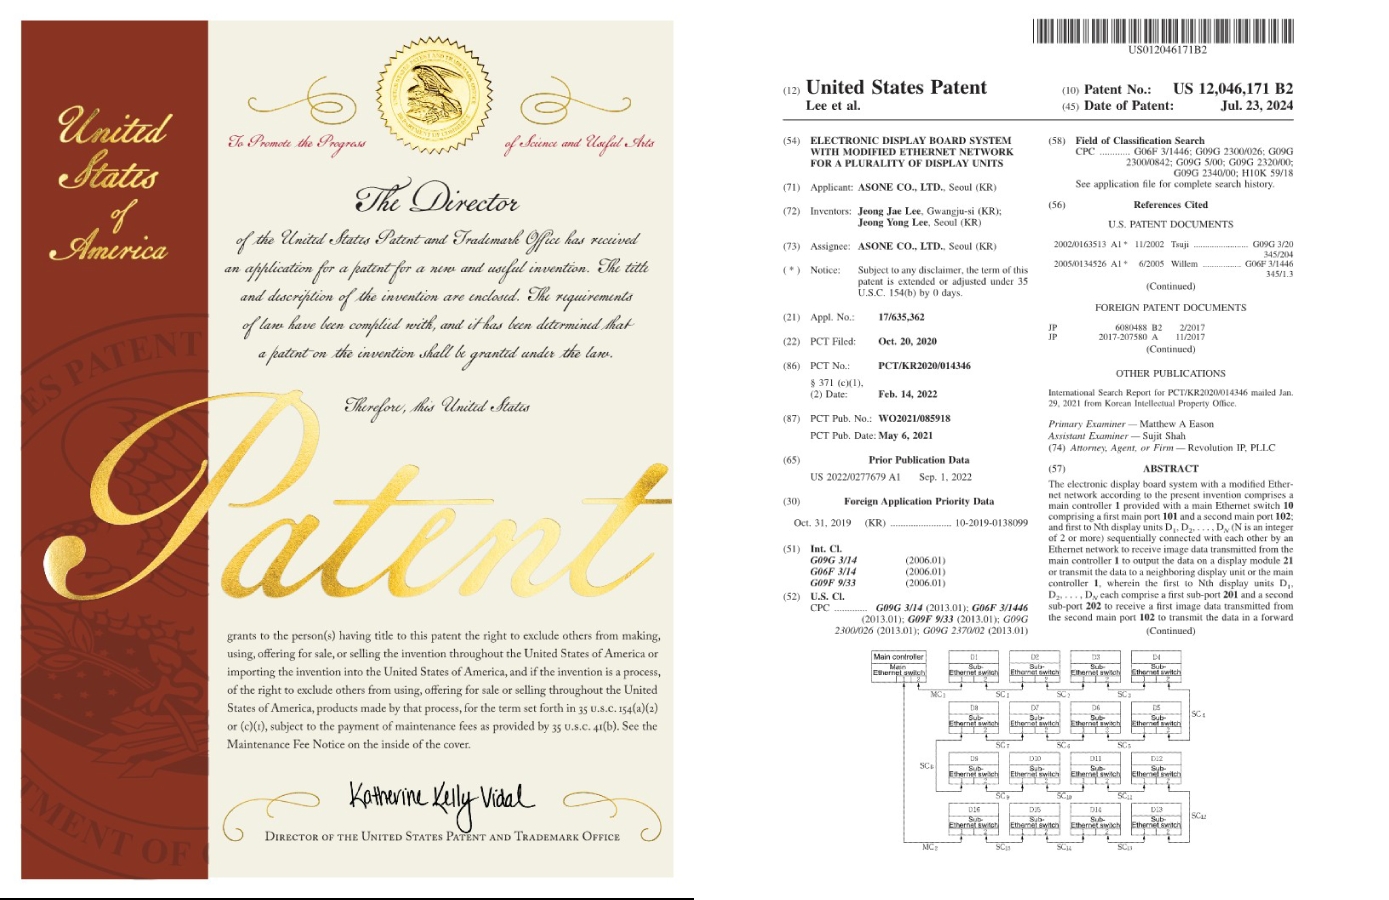 United
States
of
America
To Promote the Progress
of Science and Useful Arts
The Director
of the United States Patent and Trademark Office has received
an application for a patent for a new and useful invention. The title
and description of the invention are enclosed. The requirements
of law have been complied with, and it has been determined that
a patent on the invention shall be granted under the law.
Therefore, this United States
Patent
grants to the person(s) having title to this patent the right to exclude others from making,
using, offering for sale, or selling the invention throughout the United States of America or
importing the invention into the United States of America, and if the invention is a process,
of the right to exclude others from using, offering for sale or selling throughout the United
States of America, products made by that process, for the term set forth in 35 U.S.C. 154(a)(2)
or (c)(1), subject to the payment of maintenance fees as provided by 35 U.S.C. 41(b). See the
Maintenance Fee Notice on the inside of the cover.
Katherine Kelly Vidal
Director of the United States Patent and Trademark Office
US012046171B2
(12) United States Patent
Lee et al.
(10) Patent No.: US 12,046,171 B2
(45) Date of Patent: Jul. 23, 2024
(54) ELECTRONIC DISPLAY BOARD SYSTEM
WITH MODIFIED ETHERNET NETWORK
FOR A PLURALITY OF DISPLAY UNITS
(71) Applicant: ASONE CO., LTD., Seoul (KR)
(72) Inventors: Jeong Jae Lee, Gwangju-si (KR);
Jeong Yong Lee, Seoul (KR)
(73) Assignee: ASONE CO., LTD., Seoul (KR)
( * ) Notice: Subject to any disclaimer, the term of this
patent is extended or adjusted under 35
U.S.C. 154(b) by 0 days.
(21) Appl. No.: 17/635,362
(22) PCT Filed: Oct. 20, 2020
(86) PCT No.: PCT/KR2020/014346
§ 371 (c)(1),
(2) Date: Feb. 14, 2022
(87) PCT Pub. No.: WO2021/085918
PCT Pub. Date: May 6, 2021
(65) Prior Publication Data
US 2022/0277679 A1 Sep. 1, 2022
(30) Foreign Application Priority Data
Oct. 31, 2019 (KR) ........................ 10-2019-0138099
(51) Int. Cl.
G09G 3/14 (2006.01)
G06F 3/14 (2006.01)
G09F 9/33 (2006.01)
(52) U.S. Cl.
CPC ............ G09G 3/14 (2013.01); G06F 3/1446
(2013.01); G09F 9/33 (2013.01); G09G
2300/026 (2013.01); G09G 2370/02 (2013.01)
(58) Field of Classification Search
CPC ............ G06F 3/1446; G09G 2300/026; G09G
2300/0842; G09G 5/00; G09G 2320/00;
G09G 2340/00; H10K 59/18
See application file for complete search history.
(56) References Cited
U.S. PATENT DOCUMENTS
2002/0163513 A1* 11/2002 Tsuji ...................... G09G 3/20
345/204
2005/0134526 A1* 6/2005 Willem ................ G06F 3/1446
345/1.3
(Continued)
FOREIGN PATENT DOCUMENTS
JP 6080488 B2 2/2017
JP 2017-207580 A 11/2017
(Continued)
OTHER PUBLICATIONS
International Search Report for PCT/KR2020/014346 mailed Jan.
29, 2021 from Korean Intellectual Property Office.
Primary Examiner — Matthew A Eason
Assistant Examiner — Sujit Shah
(74) Attorney, Agent, or Firm — Revolution IP, PLLC
(57) ABSTRACT
The electronic display board system with a modified Ether-
net network according to the present invention comprises a
main controller 1 provided with a main Ethernet switch 10
comprising a first main port 101 and a second main port 102;
and first to Nth display units D1, D2, . . . , DN (N is an integer
of 2 or more) sequentially connected with each other by an
Ethernet network to receive image data transmitted from the
main controller 1 to output the data on a display module 21
or transmit the data to a neighboring display unit or the main
controller 1, wherein the first to Nth display units D1,
D2, . . . , DN each comprise a first sub-port 201 and a second
sub-port 202 to receive a first image data transmitted from
the second main port 102 to transmit the data in a forward
(Continued)
Main controller D1 D2 D3 D4
Main Ethernet switch Sub-Ethernet switch Sub-Ethernet switch Sub-Ethernet switch Sub-Ethernet switch
MC1 SC1 SC2 SC3
D8 D7 D6 D5
Sub-Ethernet switch Sub-Ethernet switch Sub-Ethernet switch Sub-Ethernet switch
SC7 SC5
D9 D10 D11 D12
Sub-Ethernet switch Sub-Ethernet switch Sub-Ethernet switch Sub-Ethernet switch
SC8 SC9 SC10 SC11
D16 D15 D14 D13
Sub-Ethernet switch Sub-Ethernet switch Sub-Ethernet switch Sub-Ethernet switch
SC12
MC2 SC15 SC14 SC13